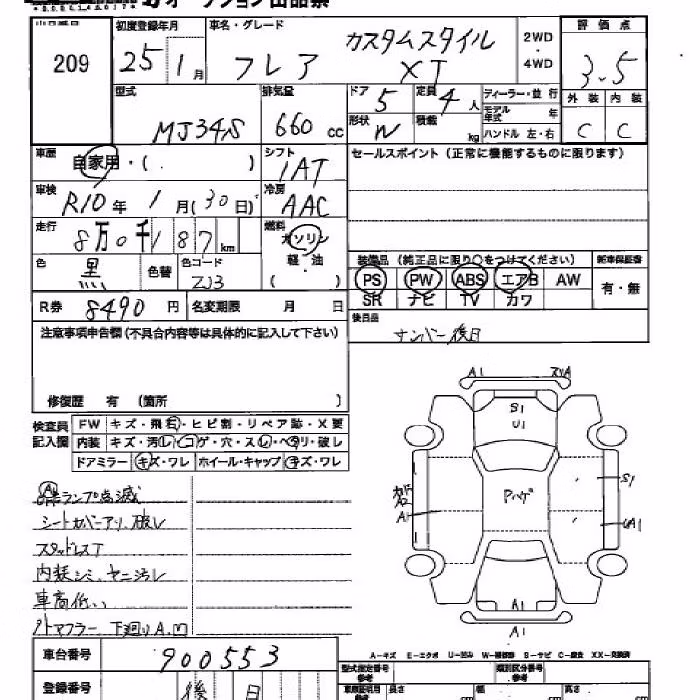 オークション出品票
209
初度登録年月 25年1月
車名・グレード フレア カスタムスタイル XT
2WD・4WD
評価点 3.5
型式 MJ34S
排気量 660 cc
ドア 5
定員 4人
形状 W
積載 kg
ディーラー・並行
モデル年式 年
ハンドル 左・右
外装 C
内装 C
車歴 自家用・( )
シフト IAT
セールスポイント(正常に機能するものに限ります)
車検 R10年1月(30日)
冷房 AAC
走行 8万0千187km
燃料 ガソリン 軽・油 ( )
色 黒 色替
色コード ZJ3
装備品(純正品に限り○をつけてください)
新車保証書 有・無
PS PW ABS エアB AW
SR ナビ TV カワ
R券 8490円
名変期限 月 日
後日品 ナンバー後日
注意事項申告欄(不具合内容等は具体的に記入して下さい)
修復歴 有 (箇所 )
検査員記入欄
FW キズ・飛石・ヒビ割・リペア跡・X要
内装 キズ・汚レ・コゲ・穴・スレ・ベタリ・破レ
ドアミラー キズ・ワレ ホイール・キャップ キズ・ワレ
ランプ点滅
シートカバーアリ、破レ
スタッドレスT
内装シミ、ヤニ汚レ
車高低い
外トマフラー 下廻りA.凹
A1
S1
U1
Pハゲ
A1
S1
UA1
A1
A1
A-キズ E-エクボ U-凹み W-補修跡 S-サビ C-腐食 XX-交換済
車台番号 900553
型式指定番号 参考
類別区分番号 参考
登録番号 後日
長さ cm 幅 cm 高さ cm